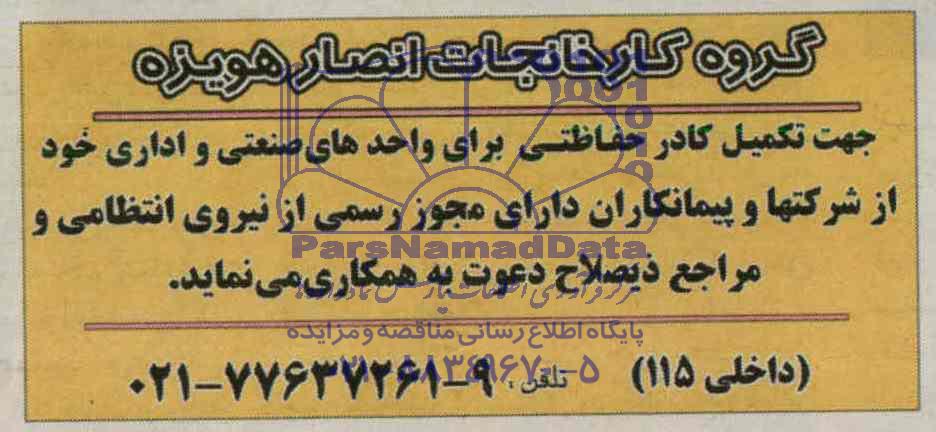 گروه کارخانجات انصار هویزه
جهت تکمیل کادر حفاظتی برای واحد های صنعتی و اداری خود
از شرکتها و پیمانکاران دارای مجوز رسمی از نیروی انتظامی و
ParsNamadData
مراجع ذیصلاح دعوت به همکاری می نماید.
پایگاه اطلاع رسانی مناقصه و مزایده
(داخلی ۱۱۵) تلفن: ۹-۷۷۶۳۷۲۶۱-۰۲۱
۰۲۱-۸۸۳۴۹۶۷۰-۵